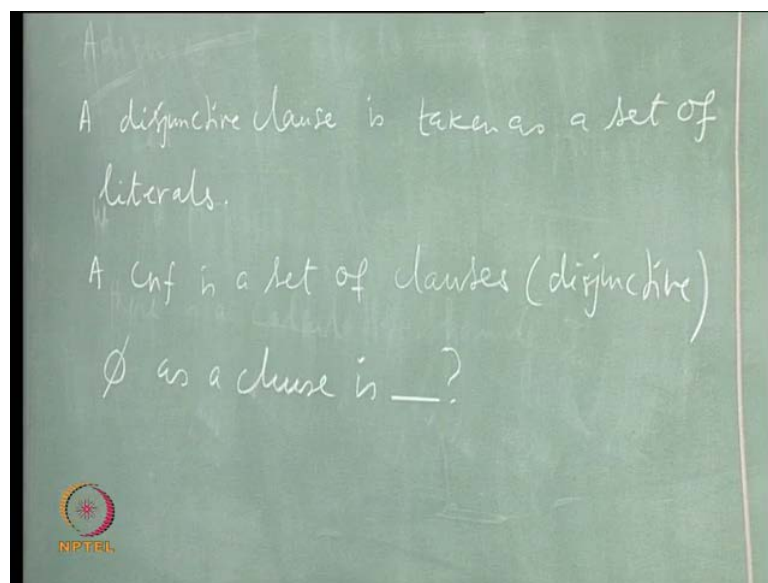 A disjunctive clause is taken as a set of
literals.
A cnf is a set of clauses (disjunctive)
Ø as a clause is __?
NPTEL